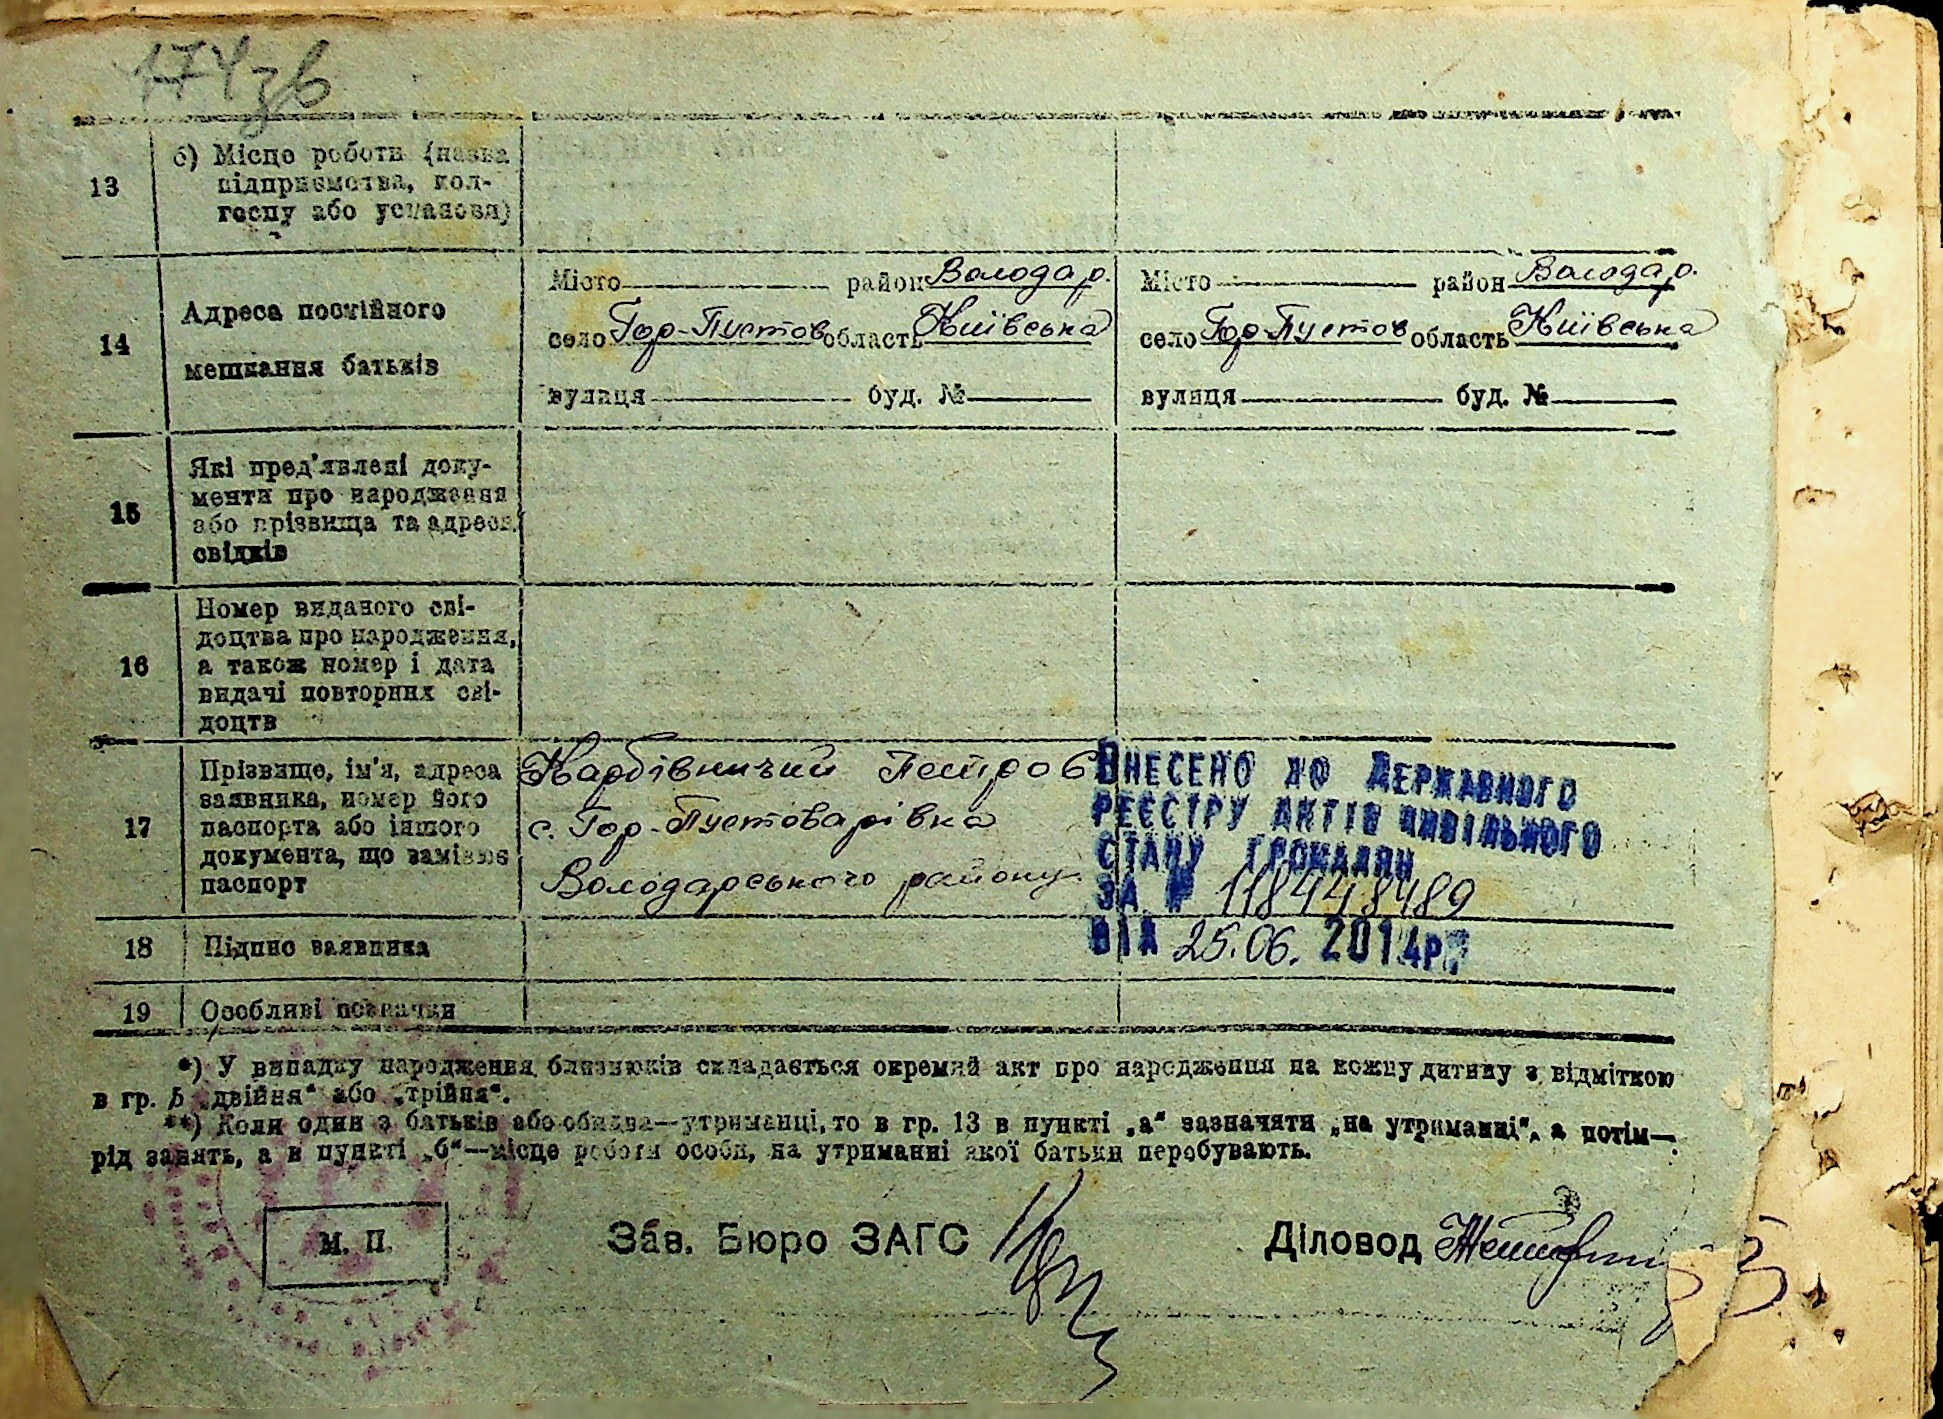 174зв
13
б) Місце роботи (назва
підприємства, кол-
госпу або установи)
14
Адреса постійного
мешкання батьків
Місто район Володар.
село Гор-Пустов область Київська
вулиця буд. №
Місто район Володар.
село Гор-Пустов область Київська
вулиця буд. №
15
Які пред'явлені доку-
менти про народження
або прізвища та адреси
свідків
16
Номер виданого сві-
доцтва про народження,
а також номер і дата
видачі повторних сві-
доцтв
17
Прізвище, ім'я, адреса
заявника, номер його
паспорта або іншого
документа, що замінює
паспорт
Карбівничий Петро
с. Гор-Пустоварівка
Володарського району
ВНЕСЕНО ДО ДЕРЖАВНОГО
РЕЄСТРУ АКТІВ ЦИВІЛЬНОГО
СТАНУ ГРОМАДЯН
ЗА № 118448489
ВІД 25.06. 2014р.
18
Підпис заявника
19
Особливі позначки
*) У випадку народження близнюків складається окремий акт про народження на кожну дитину з відміткою
в гр. 5 „двійня“ або „трійня“.
**) Коли один з батьків або обидва—утриманці, то в гр. 13 в пункті „а“ зазначяти „на утриманні“, а потім—
рід занять, а в пункті „б“—місце роботи особи, на утриманні якої батьки перебувають.
М. П.
Зав. Бюро ЗАГС
Діловод